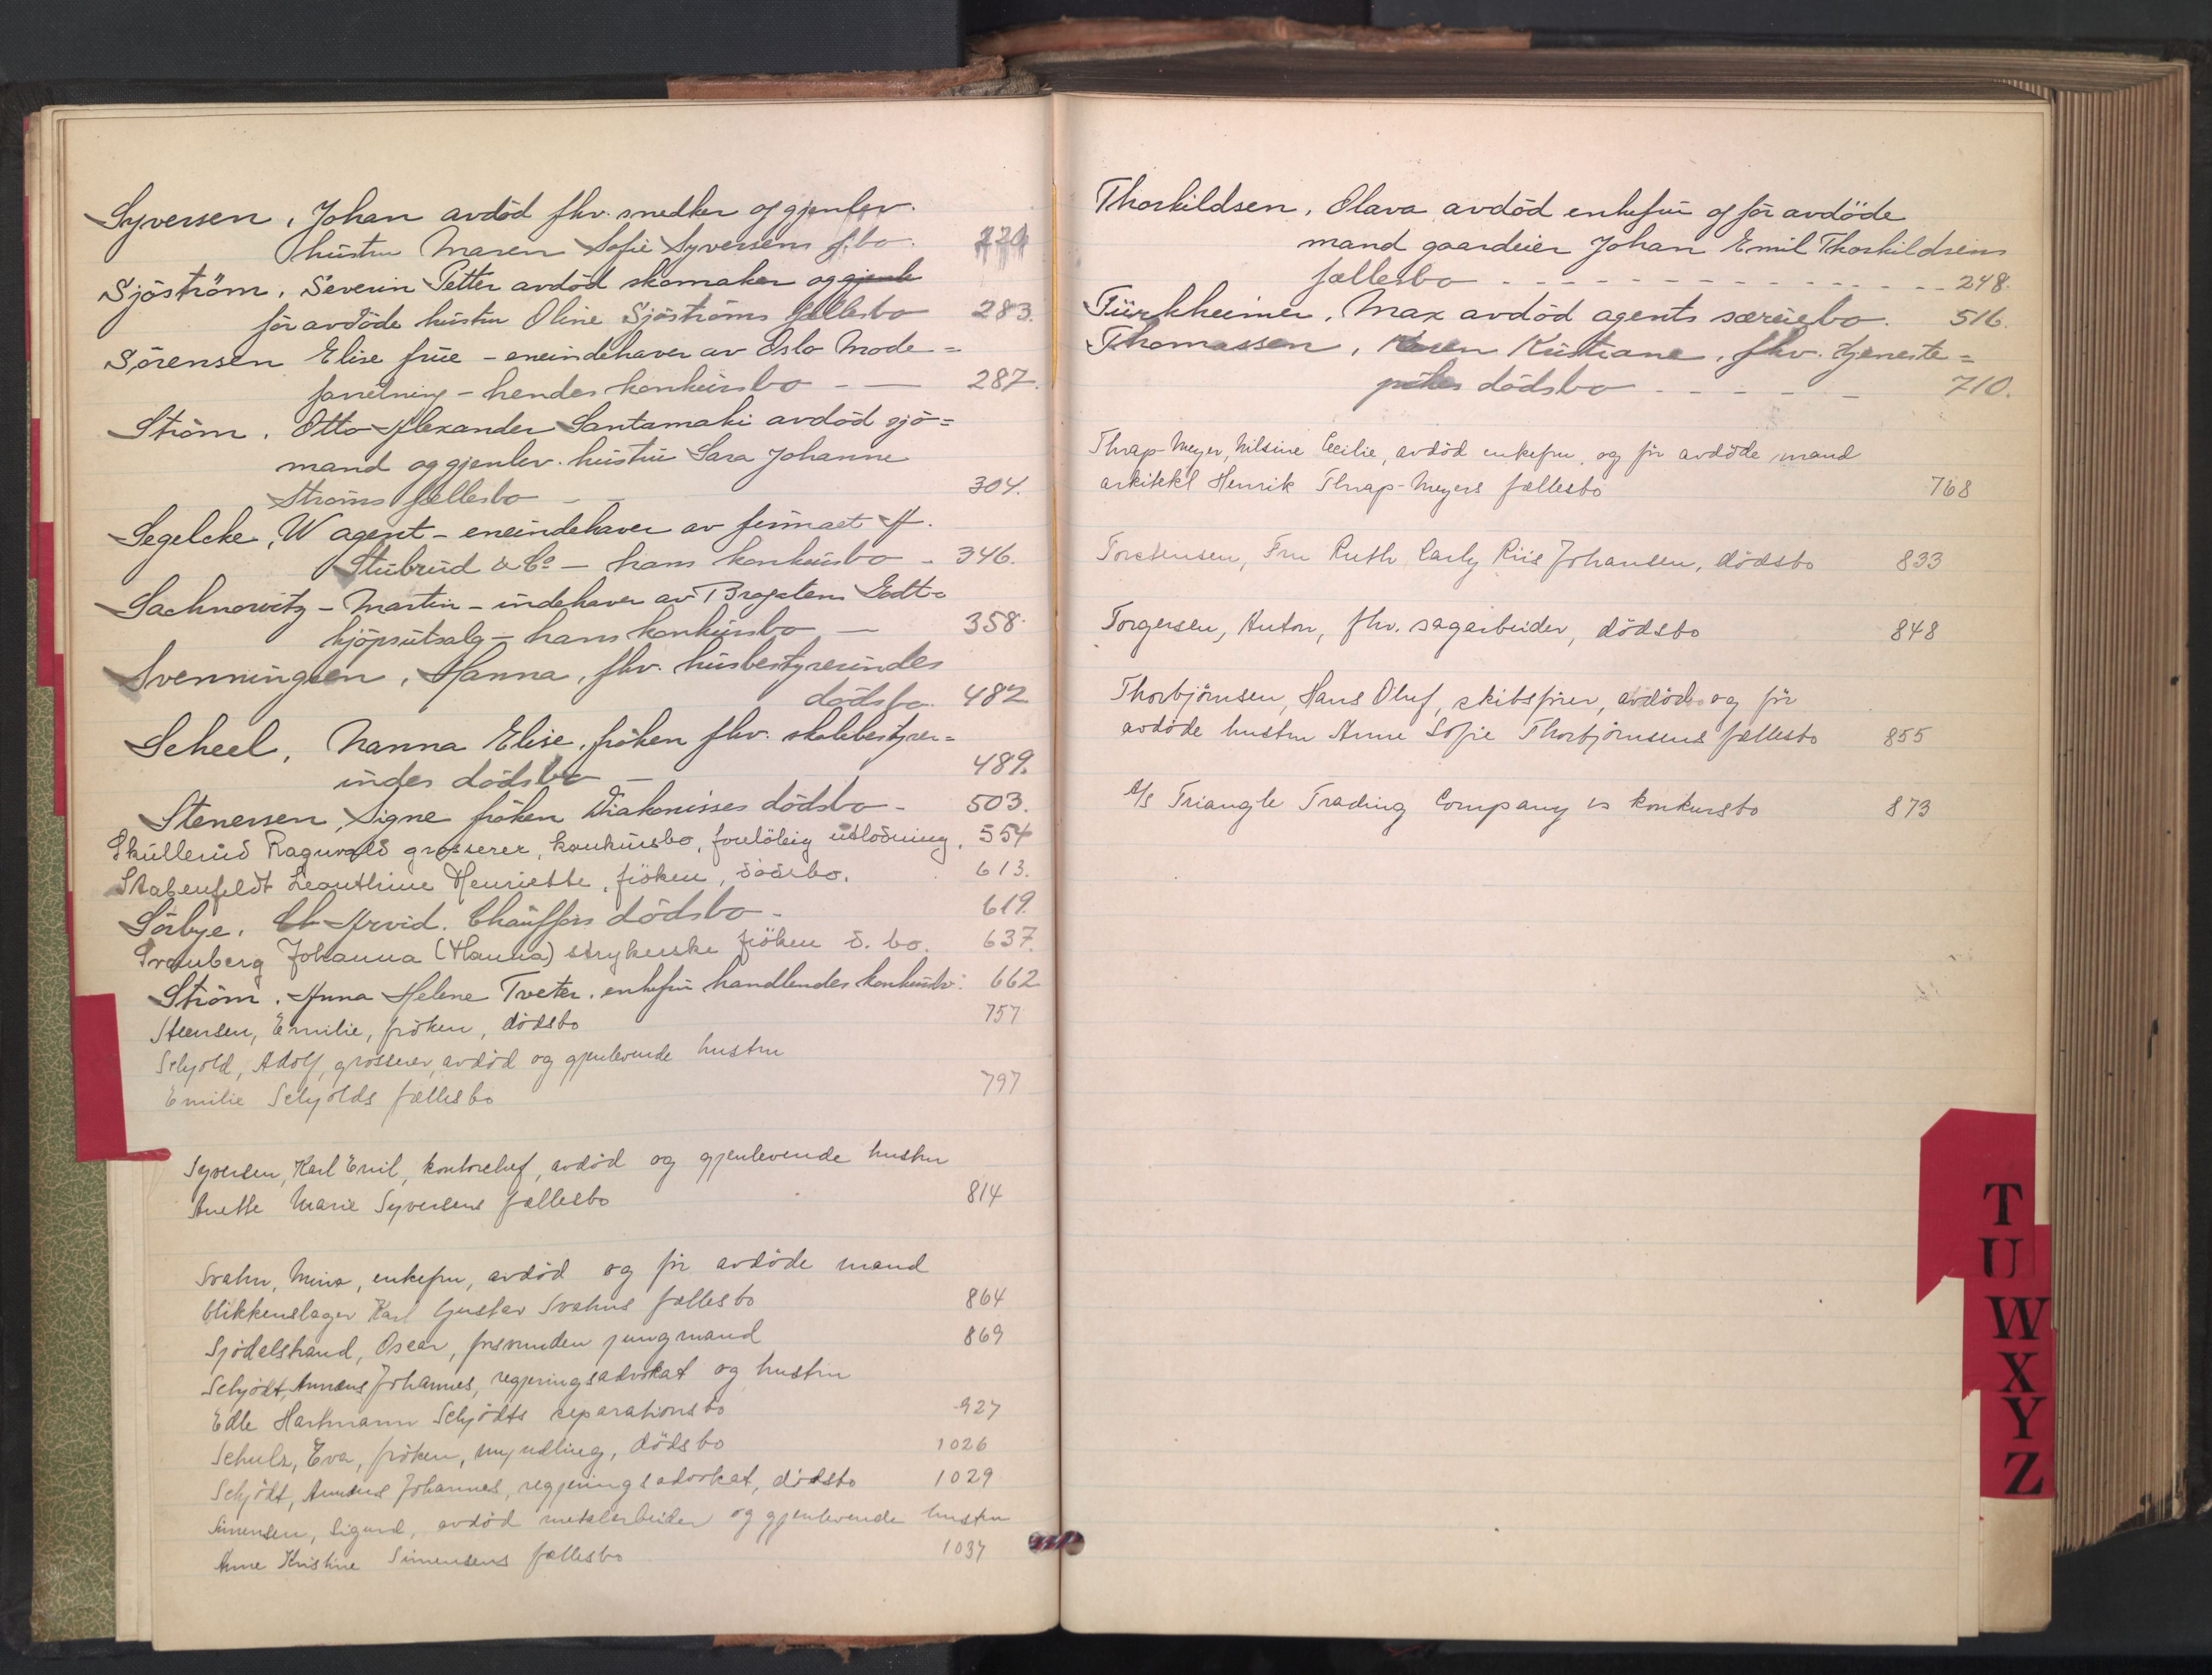 Syversen, Johan avdød fhv. snedker og gjenlev.
hustru Maren Sofie Syversens f.bo.
Sjöström, Severin Petter avdød skomaker og gjenle
før avdøde hustru Oline Sjöströms fællesbo 283.
Sörensen Elise frue – eneindehaver av Oslo Mode=
forretning – hendes konkursbo – — 287.
Ström, Otto Alexander Santamaki avdød sjö=
mand og gjenlev. hustru Sara Johanne
Ströms fællesbo – – 304.
Segelcke, W agent – eneindehaver av firmaet A.
Stubrud & Co – hans konkursbo – 346.
Sachnowitz – Martin – indehaver av Bragatens Godt=
kjöpsutsalg – hans konkursbo — 358.
Svenningsen, Hanna, fhv. husbestyrerindes
dödsbo. 482
Scheel, Nanna Elise, fröken fhv. skolebestyrer=
indes dödsbo — 489.
Stenersen, Signe fröken Diakonisses dödsbo – 503.
Skullerud Ragnvald grosserer, konkursbo, foreløbig utlodning, 554
Stabenfeldt Leonthine Henriette, fröken, dödsbo. 613.
Sörbye, Arvid. Chaufförs dödsbo – 619.
Svanberg Johanna (Hanna) strykerske fröken d. bo. 637.
Ström, Anna Helene Tveter, enkefru handlendes konkursbo: 662
Steensen, Emilie, fröken, dödsbo 757
Schjold, Adolf, grosserer, avdöd og gjenlevende hustru
Emilie Schjolds fællesbo 797
Syversen, Karl Emil, kontorchef, avdöd og gjenlevende hustru
Anette Marie Syversens fællesbo 814
Svahn, Mina, enkefru, avdöd og för avdöde mand
blikkenslager Karl Gustav Svahns fællesbo 864
Sjödelstrand, Oscar, forsvunden jungmand 869
Schjödt, Annæus Johannes, regjeringsadvokat og hustru
Edle Hartmann Schjödts separationsbo 927
Schulz, Eva, fröken, myndling, dödsbo 1026
Schjödt, Annæus Johannes, regjeringsadvokat, dödsbo 1029
Simensen, Sigurd, avdöd metalarbeider og gjenlevende hustru
Anne Kristine Simensens fællesbo 1037
Thorkildsen, Olava avdød enkefru og før avdøde
mand gaardeier Johan Emil Thorkildsens
fællesbo - - - - - - - - - - 248.
Türkheimer, Max avdød agents særeiebo. 516.
Thomassen, Karen Kristiane, fhv. tjeneste=
pikes dödsbo - - - - - 710.
Thrap-Meyer, Nilsine Cecilie, avdöd enkefru, og för avdöde mand
arkitekt Henrik Thrap-Meyers fællesbo 768
Torstensen, Fru Ruth Carly Riis Johansen, dödsbo 833
Torgersen, Anton, fhv. sagarbeider, dödsbo 848
Thorbjörnsen, Hans Oluf, skibsförer, avdöd og för
avdöde hustru Anne Sofie Thorbjörnsens fællesbo 855
A/S Triangle Trading Company is konkursbo 873
T
U
W
X
Y
Z